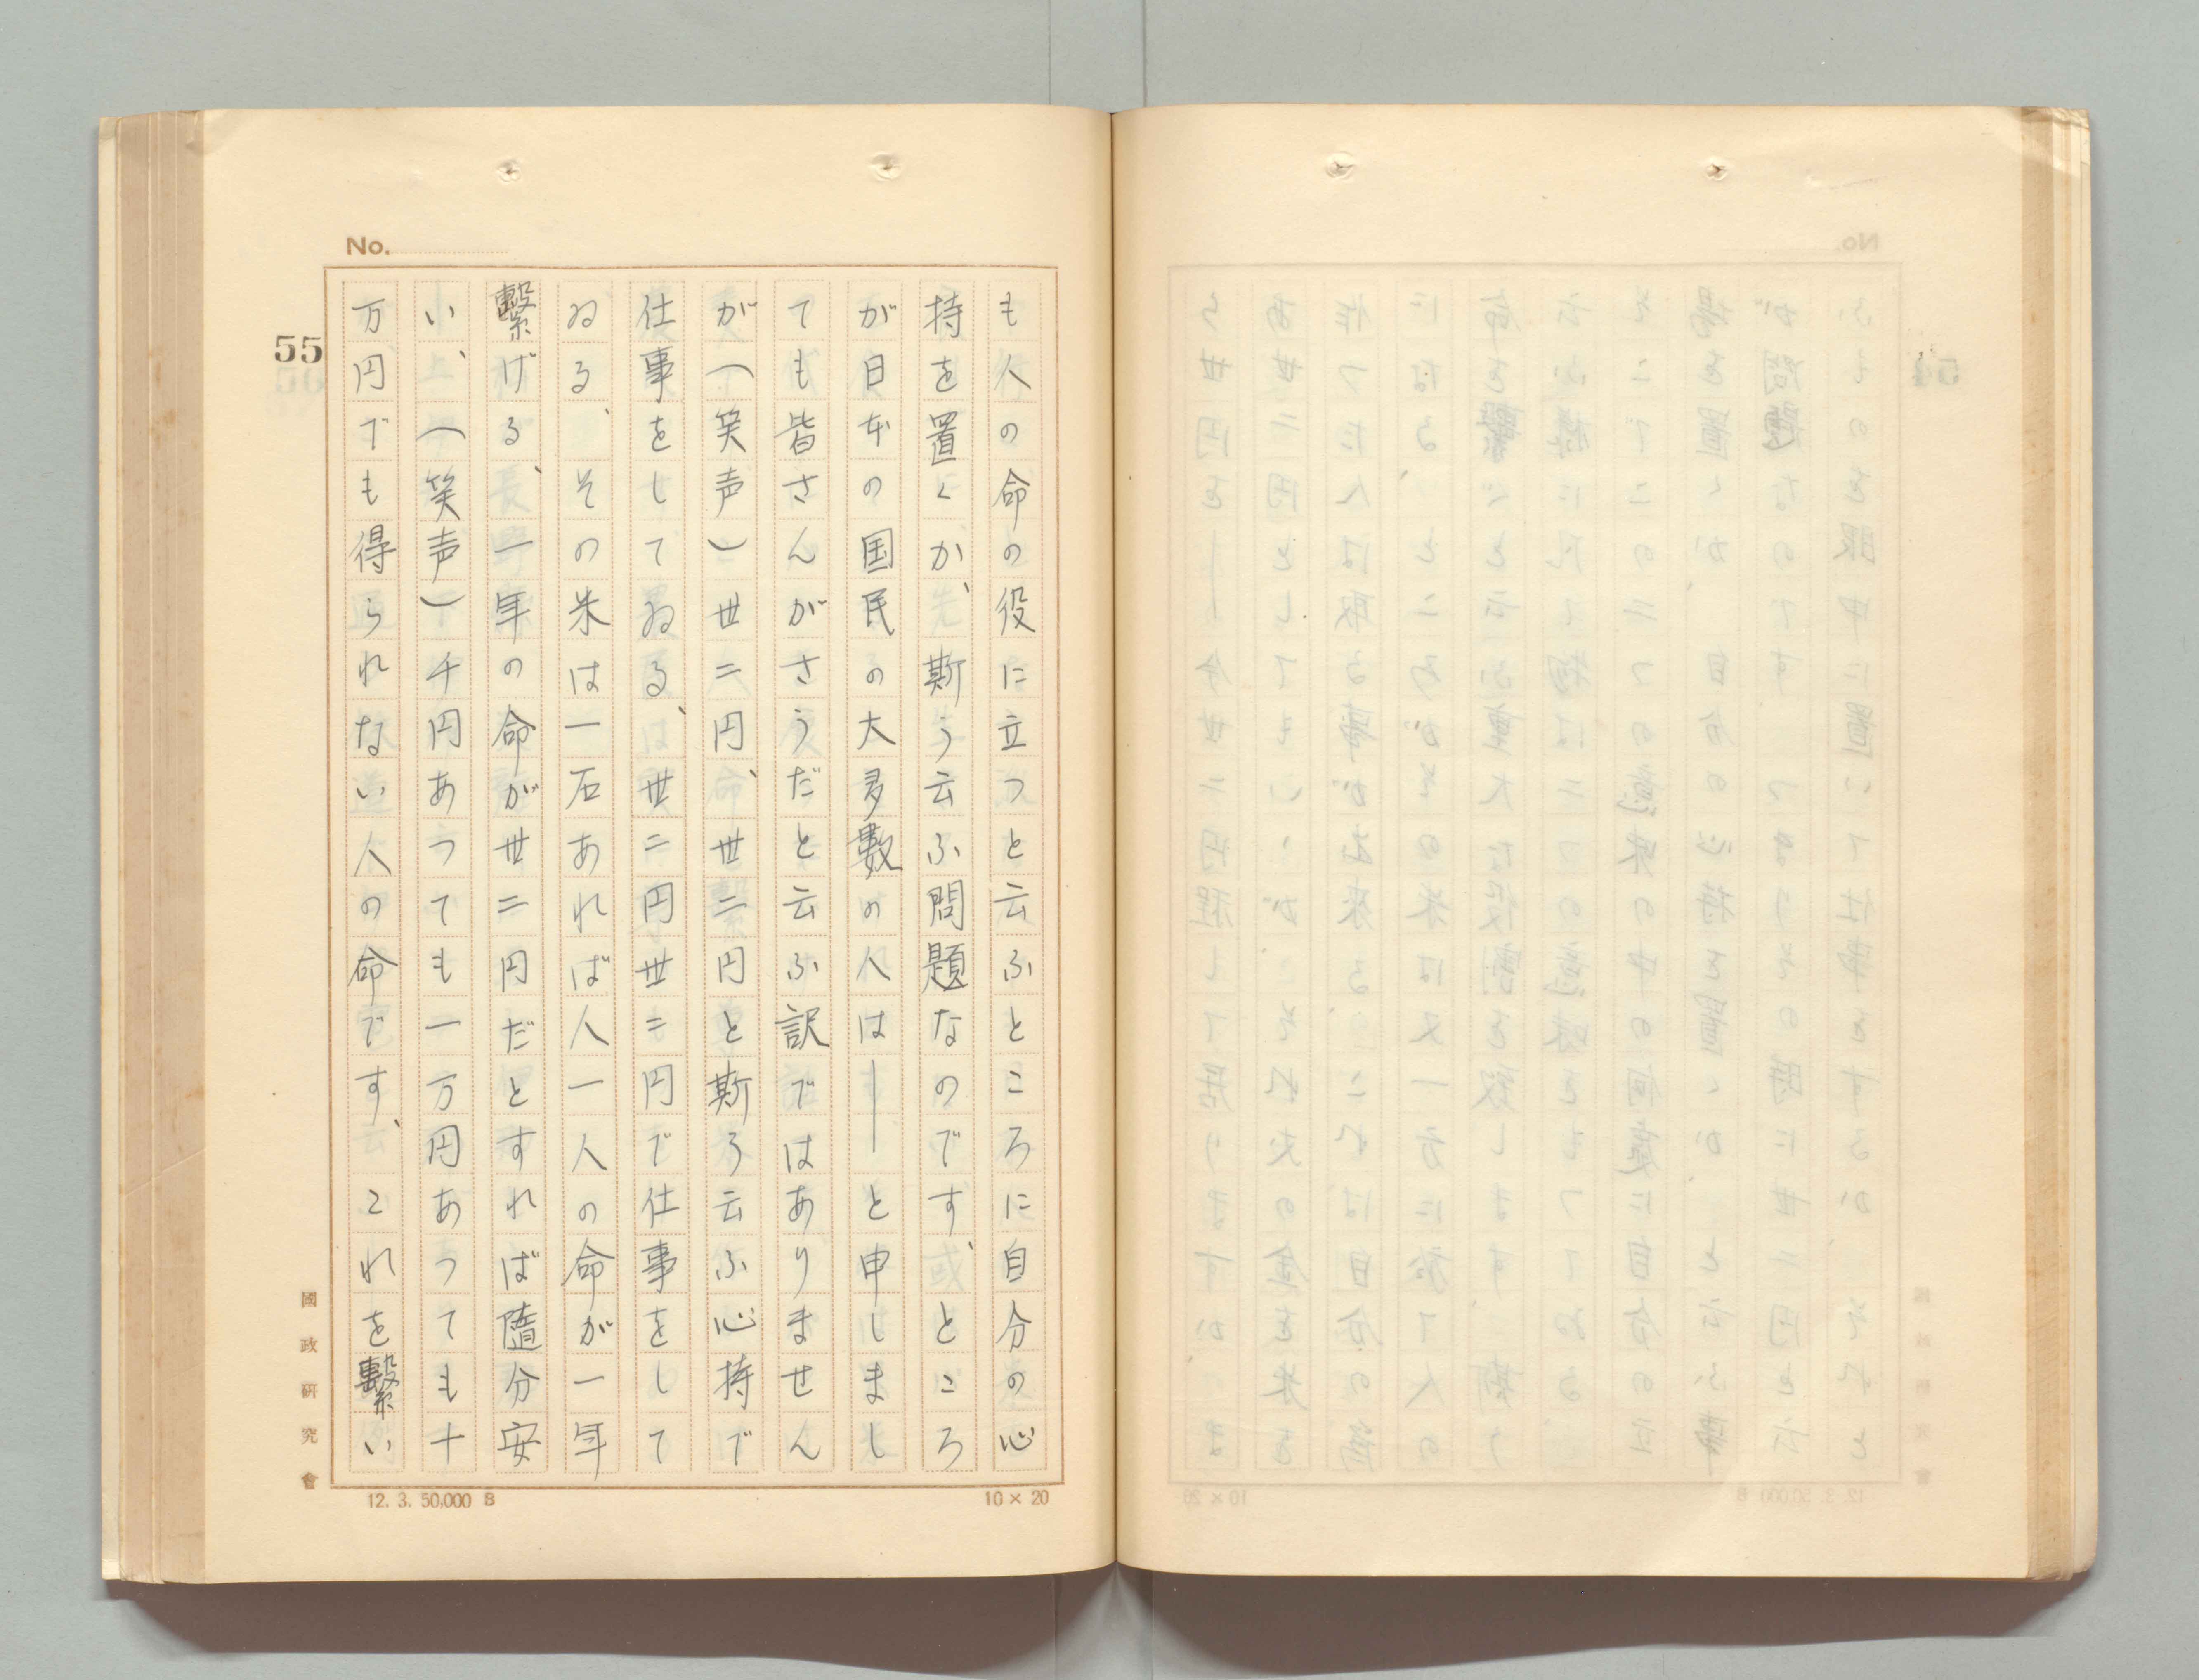 No.
55
も人の命の役に立つと云ふところに自分の心
持を置くか、斯う云ふ問題なのです、ところ
が日本の国民の大多數の人は――と申しまし
ても皆さんがさうだと云ふ訳ではありません
が(笑声)丗二円、丗二円と斯う云ふ心持で
仕事をしてゐる、丗二円丗二円で仕事をして
ゐる、その米は一石あれば人一人の命が一年
繋げる、一年の命が丗二円だとすれば隨分安
い、(笑声)千円あつても一万円あつても十
万円でも得られない人の命です、これを繋い
國政研究會
12. 3. 50,000 B
10×20